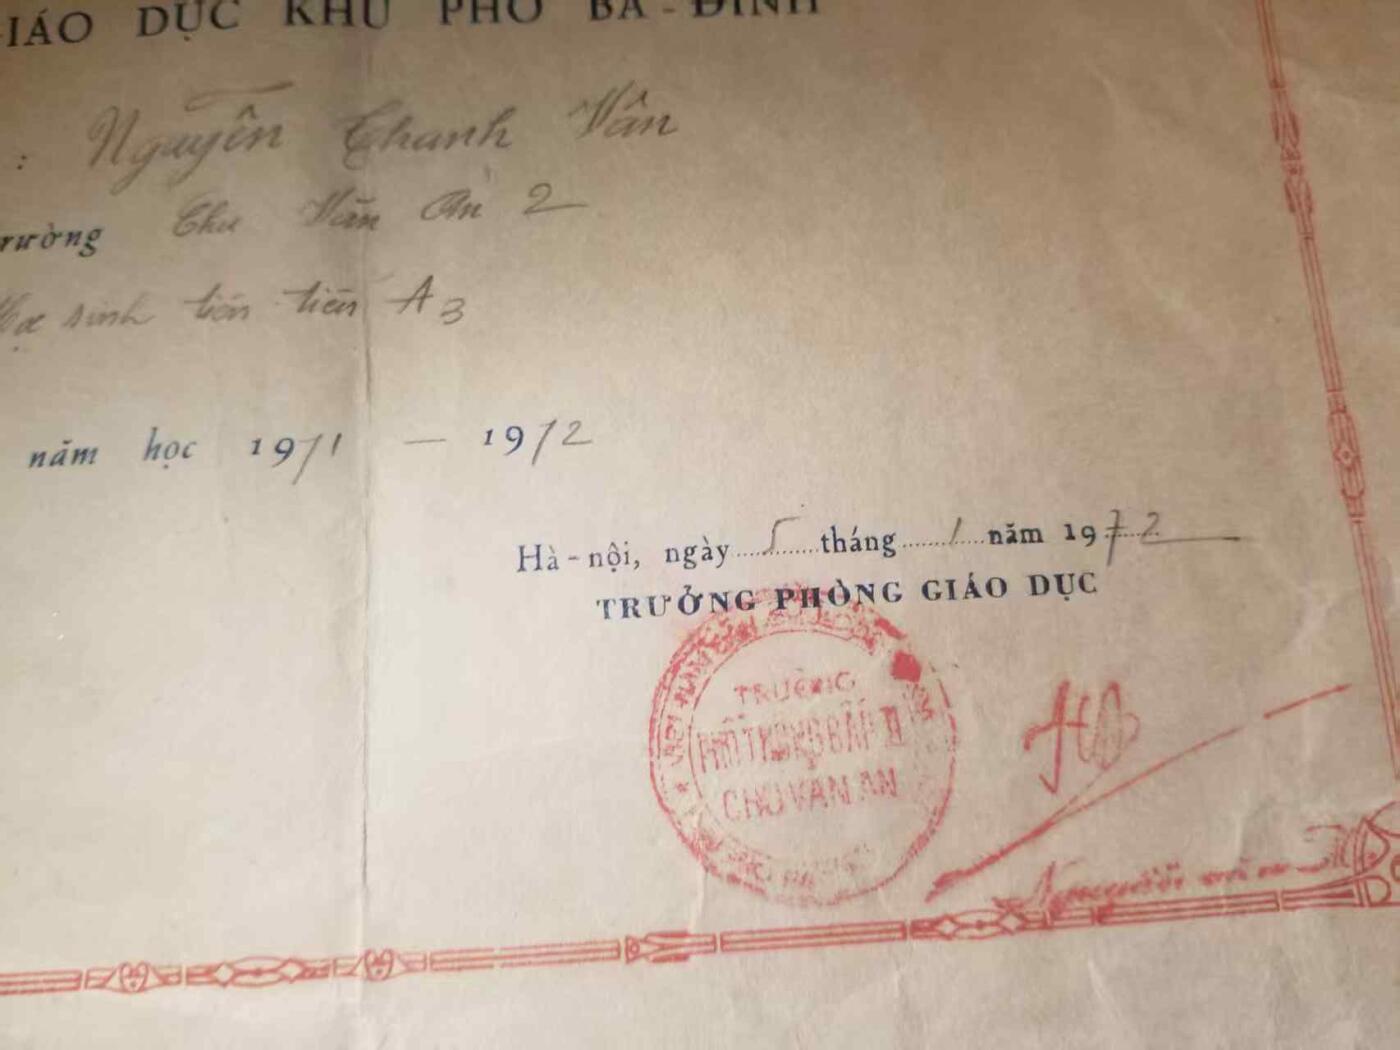 GIÁO DỤC KHU PHỐ BA-ĐÌNH
: Nguyễn Thanh Vân
trường Chu Văn An 2
Học sinh tiên tiến A3
năm học 1971 — 1972
Hà-nội, ngày 5 tháng 1 năm 1972
TRƯỞNG PHÒNG GIÁO DỤC
VIỆT NAM
TRƯỜNG
PHỔ THÔNG CẤP II
CHU VĂN AN